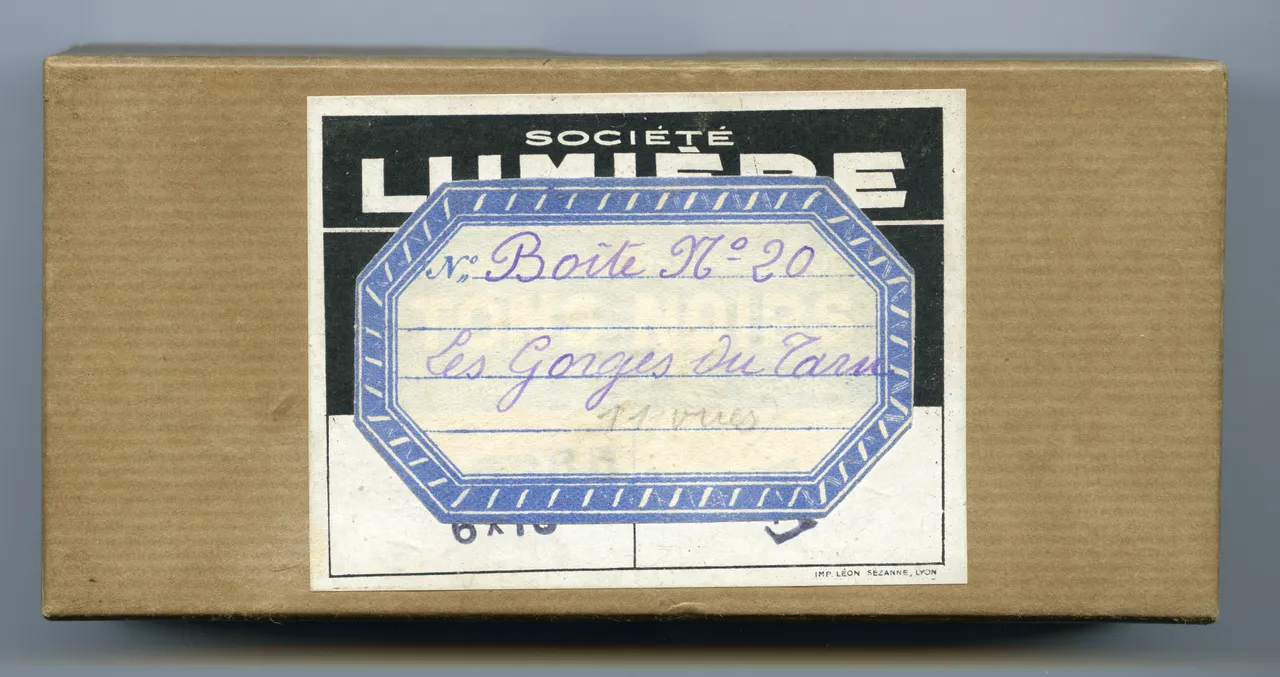 SOCIÉTÉ
LUMIÈRE
N° Boîte N° 20
Les Gorges du Tarn
11 vues
6x13
IMP. LÉON SÉZANNE, LYON